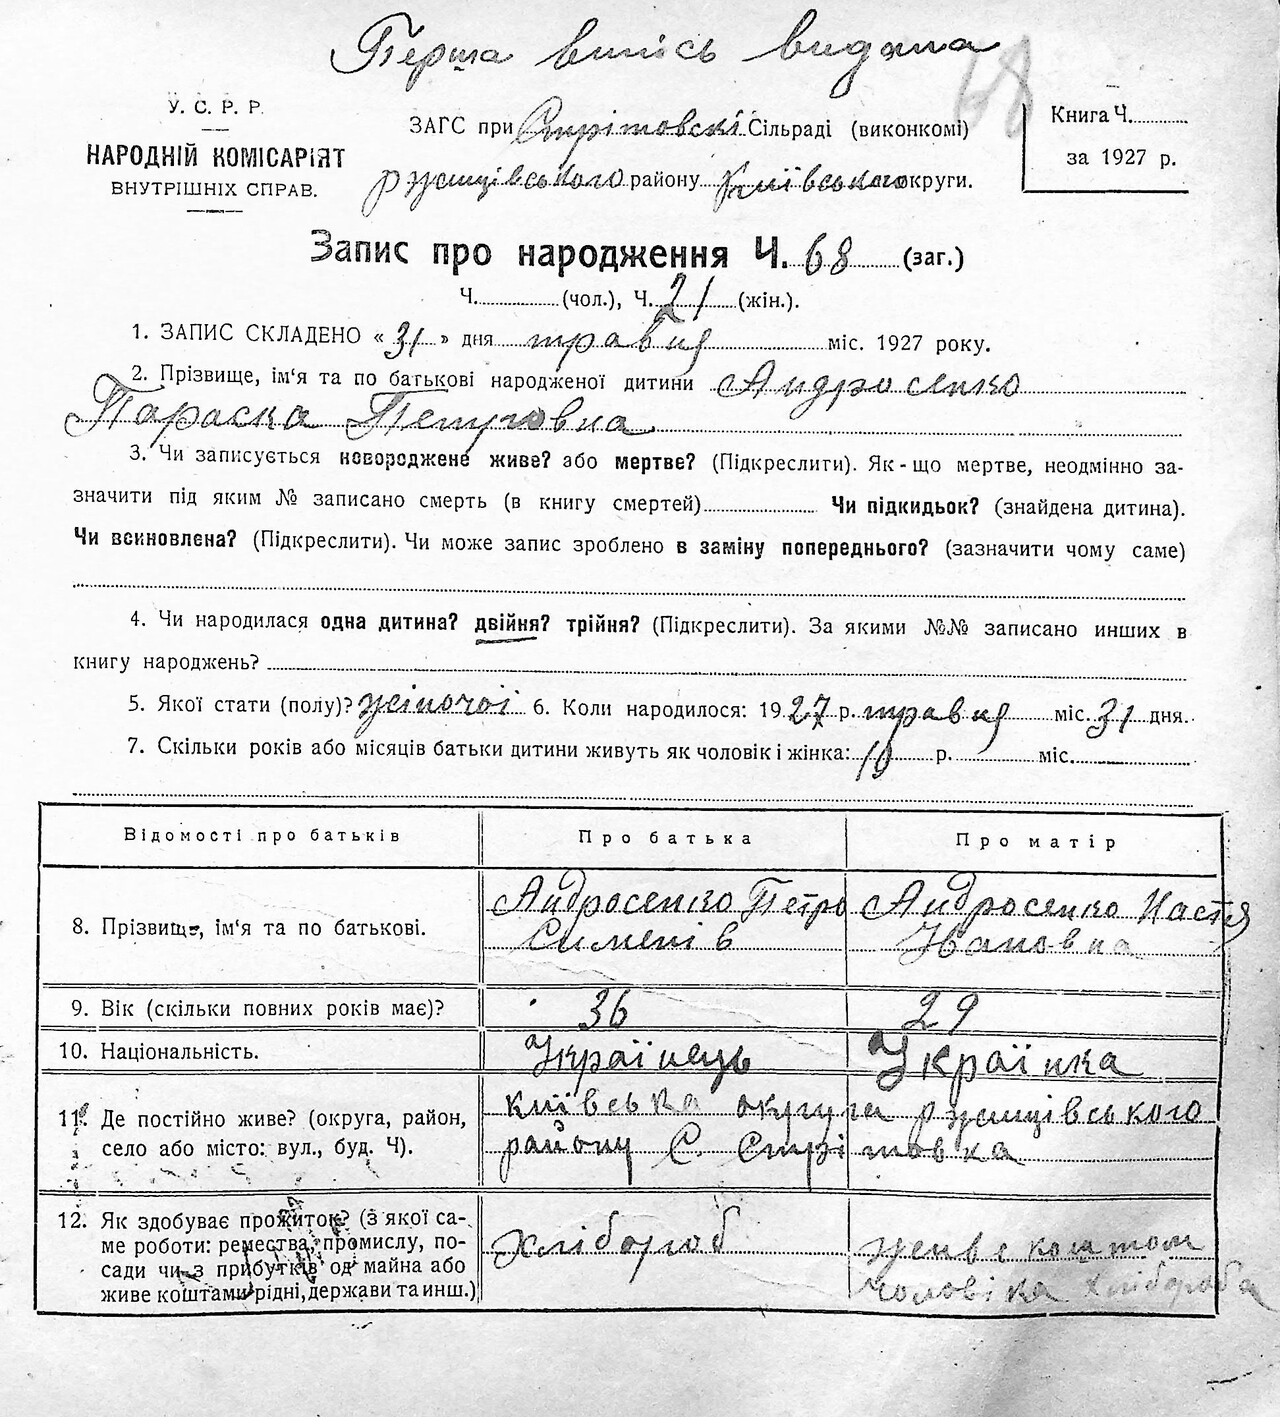 Перша випісь видана
68
У. С. Р. Р.
НАРОДНІЙ КОМІСАРІЯТ
ВНУТРІШНІХ СПРАВ.
ЗАГС при Стрітовскі Сільраді (виконкомі)
ржищівського району Київського округи.
Книга Ч.
за 1927 р.
Запис про народження Ч. 68 (заг.)
Ч. (чол.), Ч. 21 (жін.).
1. ЗАПИС СКЛАДЕНО « 31 » дня травня міс. 1927 року.
2. Прізвище, ім'я та по батькові народженої дитини Андросенко
Параска Петровна
3. Чи записується новороджене живе? або мертве? (Підкреслити). Як-що мертве, неодмінно за-
значити під яким № записано смерть (в книгу смертей) Чи підкидьок? (знайдена дитина).
Чи всиновлена? (Підкреслити). Чи може запис зроблено в заміну попереднього? (зазначити чому саме)
4. Чи народилася одна дитина? двійня? трійня? (Підкреслити). За якими №№ записано инших в
книгу народжень?
5. Якої стати (полу)? жіночої 6. Коли народилося: 1927 р. травня міс. 31 дня.
7. Скільки років або місяців батьки дитини живуть як чоловік і жінка: 10 р. міс.
Відомості про батьків Про батька Про матір
8. Прізвище, ім'я та по батькові.
Андросенко Петро
Сименів
Андросенко Настя
Івановна
9. Вік (скільки повних років має)? 36 29
10. Національність. Українець Українка
11. Де постійно живе? (округа, район,
село або місто: вул., буд. Ч).
київська округа ржищівського
району С. Стрітовка
12. Як здобуває прожиток? (з якої са-
ме роботи: ремества, промислу, по-
сади чи з прибутків од майна або
живе коштами рідні, держави та инш.)
Хлібороб
живе коштом
чоловіка хлібороба